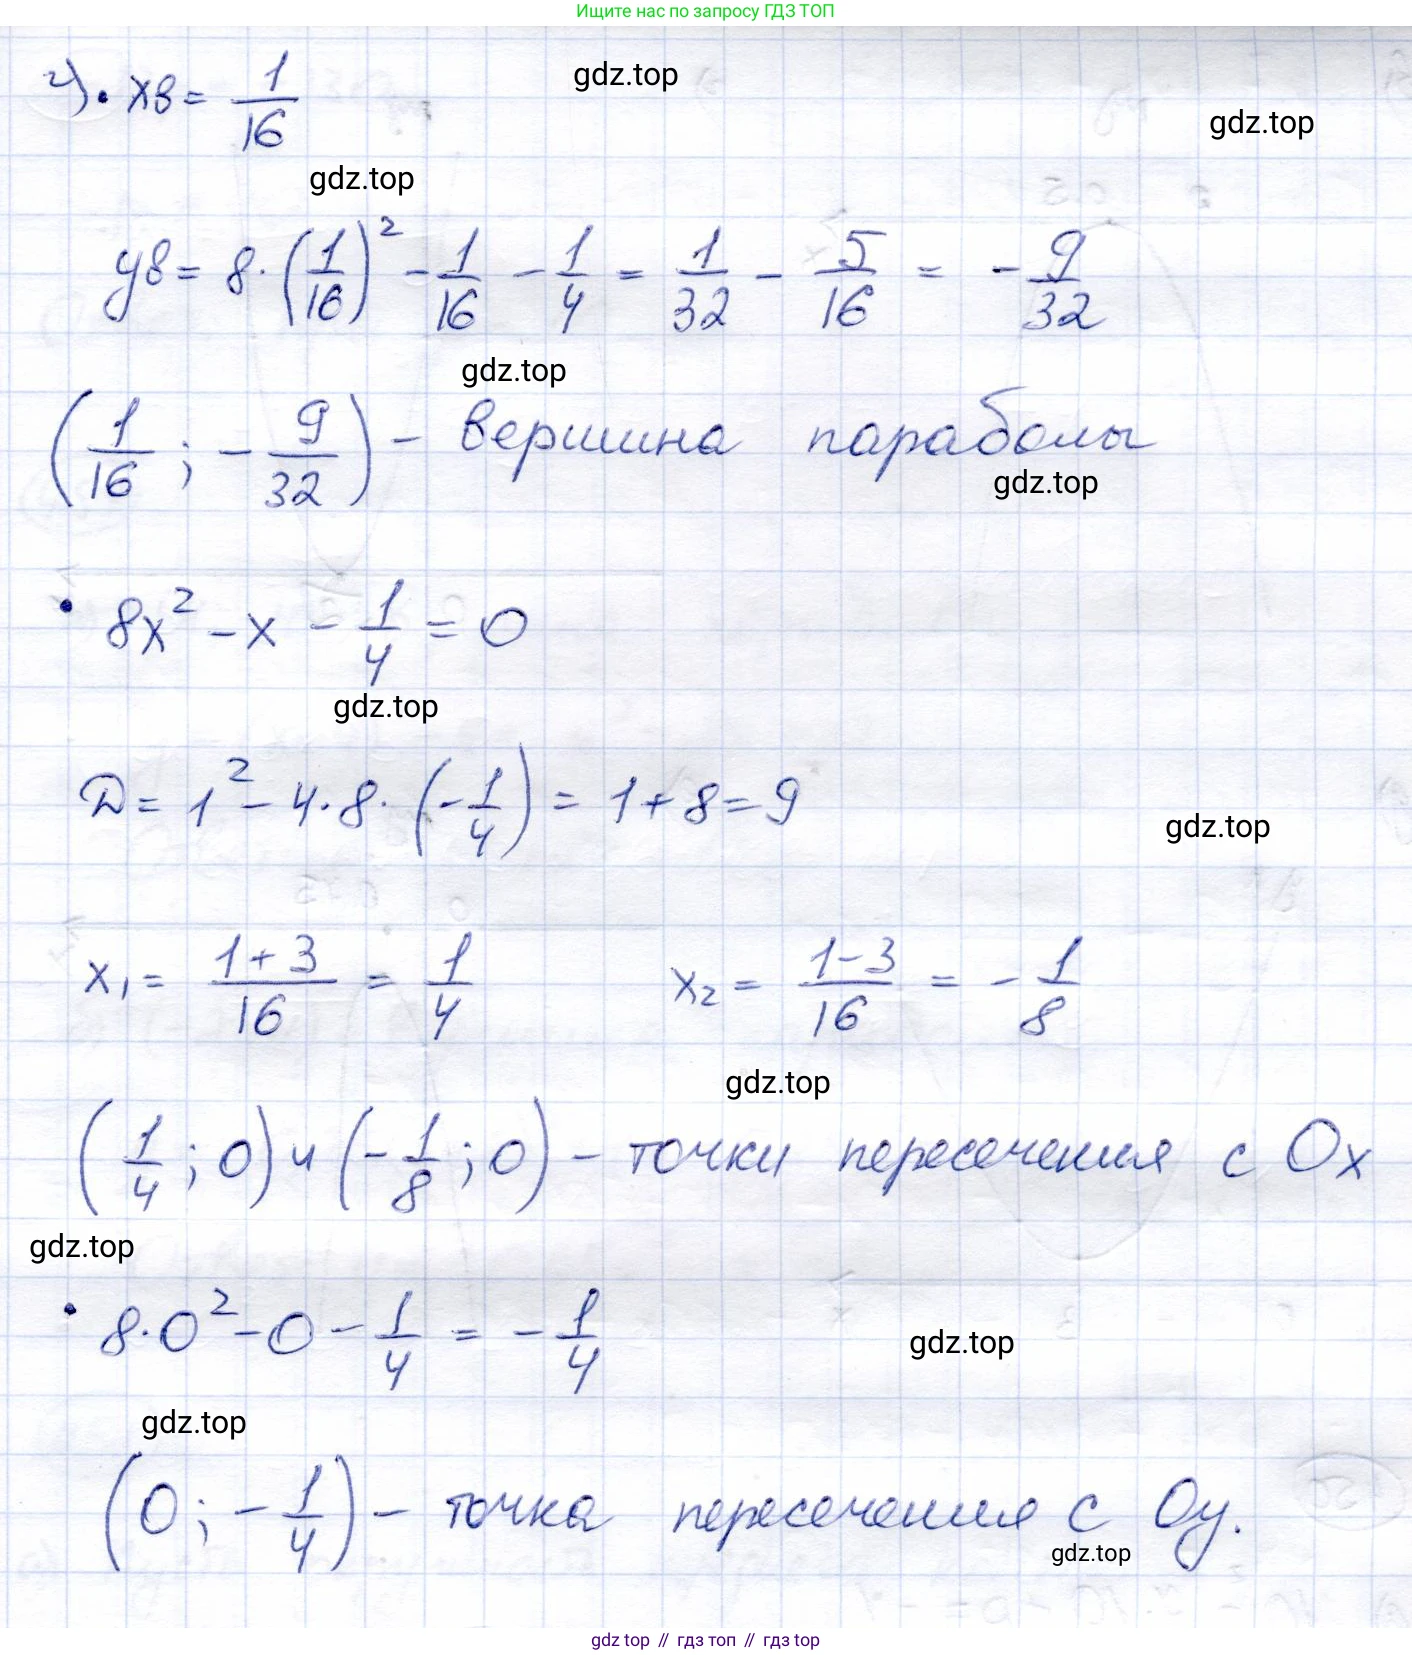 Ищите нас по запросу ГДЗ ТОП
г) • xв = 1/16
gdz.top
gdz.top
gdz.top
yв = 8·(1/16)² - 1/16 - 1/4 = 1/32 - 5/16 = -9/32
gdz.top
(1/16; -9/32) - вершина параболы
gdz.top
• 8x² - x - 1/4 = 0
gdz.top
D = 1² - 4·8·(-1/4) = 1 + 8 = 9
gdz.top
x₁ = (1+3)/16 = 1/4 x₂ = (1-3)/16 = -1/8
gdz.top
(1/4; 0) и (-1/8; 0) - точки пересечения с Ox
gdz.top
• 8·0² - 0 - 1/4 = -1/4
gdz.top
gdz.top
(0; -1/4) - точка пересечения с Oy.
gdz.top
gdz top // гдз топ // гдз top